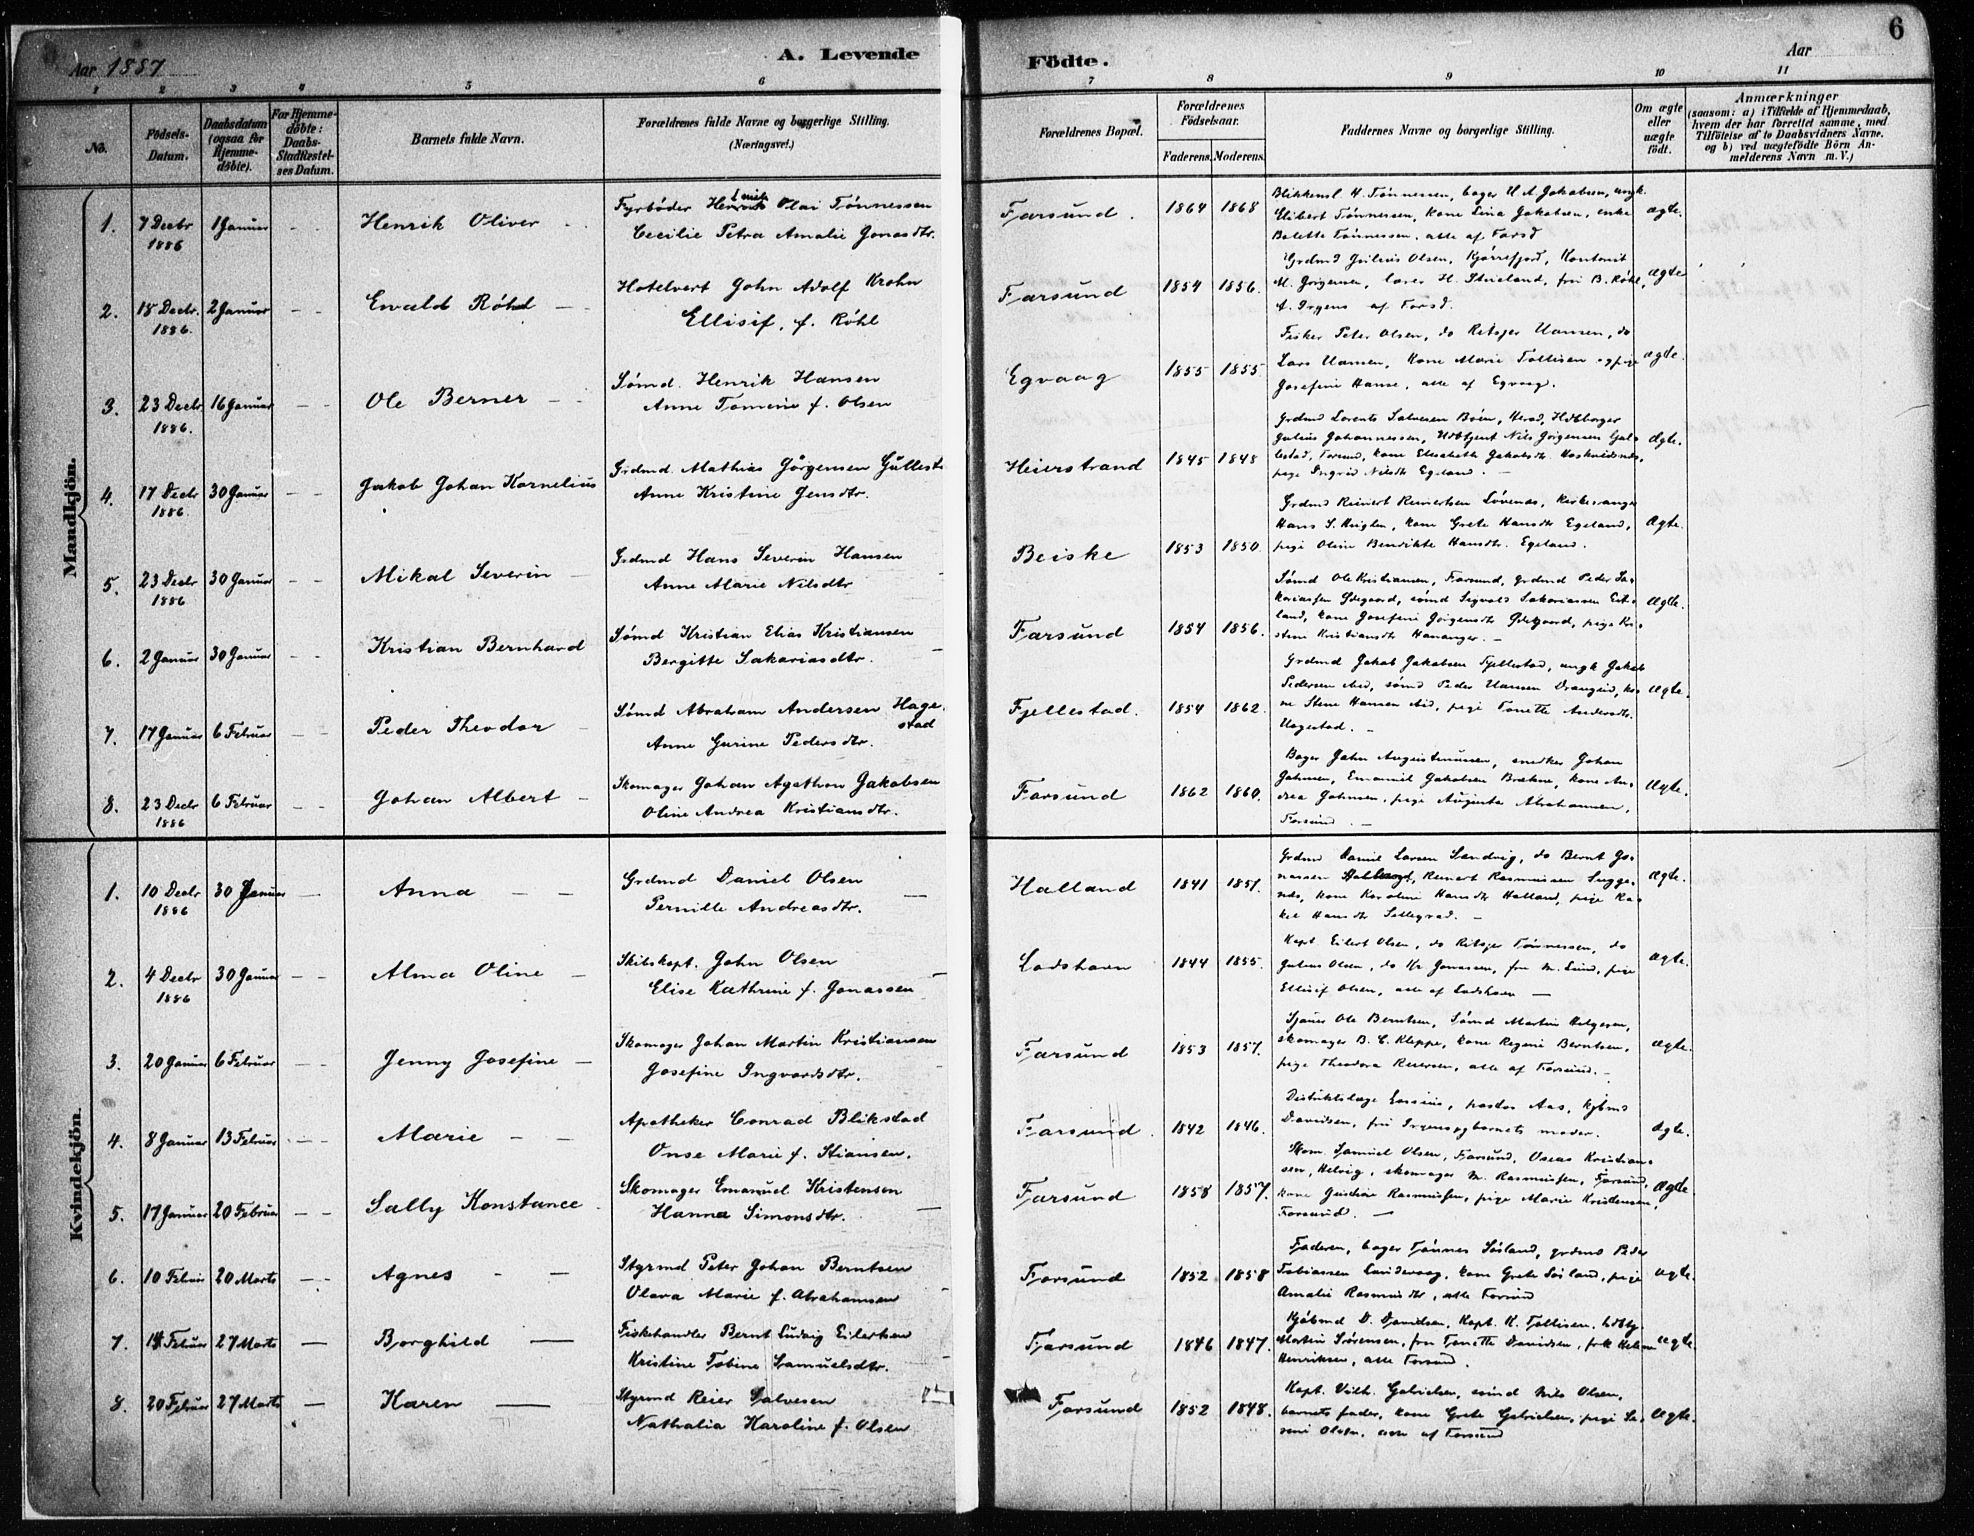 6
Aar 1887
A. Levende
Födte.
Aar
1 2 3 4 5 6 7 8 9 10 11
No.
Födsels-
Datum.
Daabsdatum
(ogsaa for
Hjemme-
döbte).
Far Hjemme-
döbte:
Daabs-
Stadfæstel-
ses Datum.
Barnets fulde Navn.
Forældrenes fulde Navne og borgerlige Stilling.
(Næringsvei.)
Forældrenes Bopæl.
Forældrenes
Födselsaar.
Faderens. Moderens.
Faddernes Navne og borgerlige Stilling.
Om ægte
eller
uægte
födt.
Anmærkninger
(saasom: a) i Tilfælde af Hjemmedaab,
hvem der har forrettet samme, med
Tilföielse af to Daabsvidners Navne.
og b) ved uægtefödte Börn An-
melderens Navn m. V.)
Mandkjön.
1. 7 Decbr 1886 1 Januar Henrik Oliver
Fyrbøder Olai Tønnessen
Cecilie Petra Amalie Jonasdtr.
Farsund. 1864 1868
Blikkensl H. Tønnessen, bager U A Jakobsen, ungk.
Elibert Tønnessen, kone Lina Jakobsen, enke
Bolette Tønnessen, alle af Farsd
ægte.
2. 18 Decbr. 1886. 2 Januar Ewald Röhl
Hotelvert John Adolf Krohn
Ellisif, f. Röhl
Farsund 1854 1856.
Grdmd Julius Olsen, Kjørrefjord, Kontorist
M. Jörgensen, lærer H. Skeieland, frö B. Röhl,
af Farsd.
ægte
3. 23 Decbr 1886. 16 Januar Ole Berner
Sømd. Henrik Hansen
Anne Tomine f. Olsen
Egvaag 1855 1855
Fisker Peter Olsen, do Reinhart Hansen, do
Lars Hansen, kone Marie Tollisen og pige
Josefine Hanse, alle af Egvaag.
ægte.
4. 17 Decbr 1886. 30 Januar Jakob Johan Kornelius
Grdmd Mathias Jörgensen Gullest
Anne Kristine Jensdtr.
Heierstrand 1845 1848
Grdmd Lorents Salvesen Böen, Herad,
Julius Johannessen, Nils Jörgensen
Farsund, kone Elisabeth Jakobsdtr.
pige Ingrid Nilsdtr Egeland.
Ægte.
5. 23 Decbr 1886 30 Januar Mikal Severin
Grdmd Hans Severin Hansen
Anne Marie Nilsdtr
Beiske 1853 1850.
Grdmd Reinert Reinertsen Lövenæs, kirkesanger
Hans S. kone Grete Hansdtr Egeland,
pige Oline Bendikte Hansdtr. Egeland.
Ægte.
6. 2 Januar 30 Januar Kristian Bernhard
Sømd Kristian Elias Kristiansen
Bergitte Sakariasdtr.
Farsund 1854 1856.
Sømd Ole Kristiansen, Farsund, Grdmd Peder Sa-
kariassen Ødegaard, sømd Sigvald Sakariassen
land, kone Josefine Jörgensdtr Ødegaard, pige
Kristiansdtr Hananger.
Ægte.
7. 17 Januar 6 Februar Peder Theodor
Sømd Abraham Andersen Hage-
stad
Anne Gurine Pedersdtr.
Fjellestad. 1854 1862.
Grdmd Jakob Jakobsen Fjellestad, ungk Jakob
Pedersen Aid, sømd Peder Hansen Drangeid, ko-
ne Stene Hansen Aid, pige Tonette Andersdtr.
Hagestad.
Ægte.
8. 23 Decbr 1886 6 Februar Johan Albert
Skomager Johan Agathon Jakobsen
Oline Andrea Kristiansdtr.
Farsund 1862 1860.
Bager John Augustinussen, snedker Johan
Johnsen, Emanuel Jakobsen Brekne, kone An-
drea Johnsen, pige Augusta Abrahamsen,
Farsund.
Ægte.
Kvindekjön.
1. 10 Decbr 1886 30 Januar Anna
Grdmd Daniel Olsen
Pernille Andreasdtr.
Halland 1841 1851.
Grdmd Daniel Larsen Sandvig, do Bernt Jo-
nassen Reinert Rasmussen
kone Karoline Hansdtr Halland, pige Ra-
kel Hansdtr
Ægte.
2. 4 Decbr 1886 30 Januar Alma Oline
Skibskapt. John Olsen
Elise Kathrine f. Jonassen
Lodshavn 1844 1855.
Kapt. Eilert Olsen, do Tönnessen, do
Julius Olsen, do Kr Jonassen, fru M. Lund, pige
Ellisif Olsen, alle af Lodshavn
Ægte.
3. 20 Januar 6 Februar Jenny Josefine
Skomager Johan Martin Kristiansen
Josefine Ingvardsdtr.
Farsund 1853 1857.
Sjauer Ole Berntsen, Sømd Martin Helgesen,
skomager B. C. Kleppe, kone Regine Berntsen,
pige Theodora Reiersen, alle af Farsund.
Ægte.
4. 8 Januar 13 Februar Marie
Apotheker Conrad Blikstad
Onse Marie f. Stiansen.
Farsund. 1842 1846.
Distriktslæge pastor Aas, kjbmd
Davidsen, frü og barnets moder.
Ægte.
5. 17 Januar 20 Februar Sally Konstance
Skomager Emanuel Kristensen
Hanna Simonsdtr.
Farsund 1858 1857.
Skom. Samuel Olsen, Farsund, Oseas Kristian-
sen, Helvig, skomager M. Rasmussen, Farsund,
kone Gustine Rasmussen, pige Marie Kristensen,
Farsund.
Ægte.
6. 10 Februar 20 Marts Agnes
Styrmd Peter Johan Berntsen
Olava Marie f. Abrahamsen
Farsund 1852 1858
Faderen, bager Tønnes Søsland, grdmd Peder
Tobiassen kone Grete Søsland, pige
Amalie Rasmusdtr, alle Farsund
Ægte.
7. 14 Februar 27 Marts Borghild
Fiskehandler Bernt Ludvig Eilertsen
Kristine Tobine Samuelsdtr.
Farsund 1846 1847.
Kjöbmd D. Davidsen, Kapt. K. Tollisen,
Martin Sørensen, fru Tonette Davidsen,
Henriksen, alle Farsund.
Ægte.
8. 20 Februar 27 Marts Karen
Styrmd Reier Salvesen
Nathalia Karoline f. Olsen
Farsund 1852 1848.
Kapt. Vilh. Gabrielsen, svend Nils Olsen,
barnets fader, kone Grete Gabrielsen, pige
Olsen, alle af Farsund
Ægte.